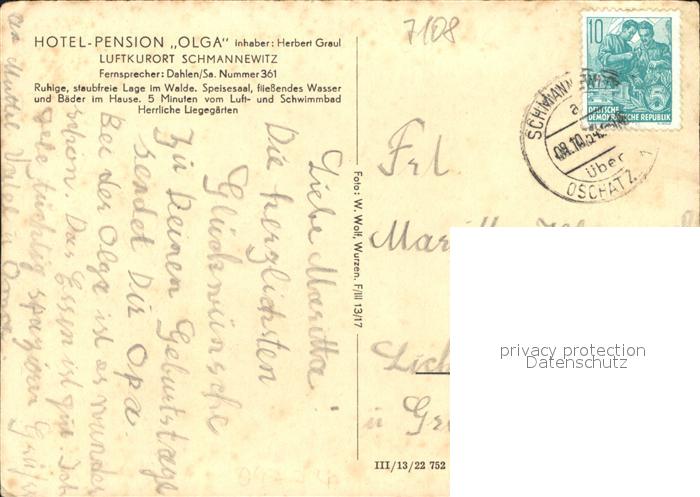 HOTEL-PENSION „OLGA" Inhaber: Herbert Graul
LUFTKURORT SCHMANNEWITZ
Fernsprecher: Dahlen/Sa. Nummer 361
Ruhige, staubfreie Lage im Walde. Speisesaal, fließendes Wasser
und Bäder im Hause. 5 Minuten vom Luft- und Schwimmbad
Herrliche Liegegärten
7108
10
5
DEUTSCHE
DEMOKRATISCHE REPUBLIK
über
OSCHATZ
Liebe Maritta!
Die herzlichsten
Glückwünsche
zu Deinen Geburtstage
sendet Dir Opa.
Bei der Olga ist es wunder
schön. Das Essen ist gut. Ich
gehe tüchtig spazieren
Opa
Foto: W. Wolf, Wurzen. F/III 13/17
Frl.
III/13/22 752
privacy protection
Datenschutz